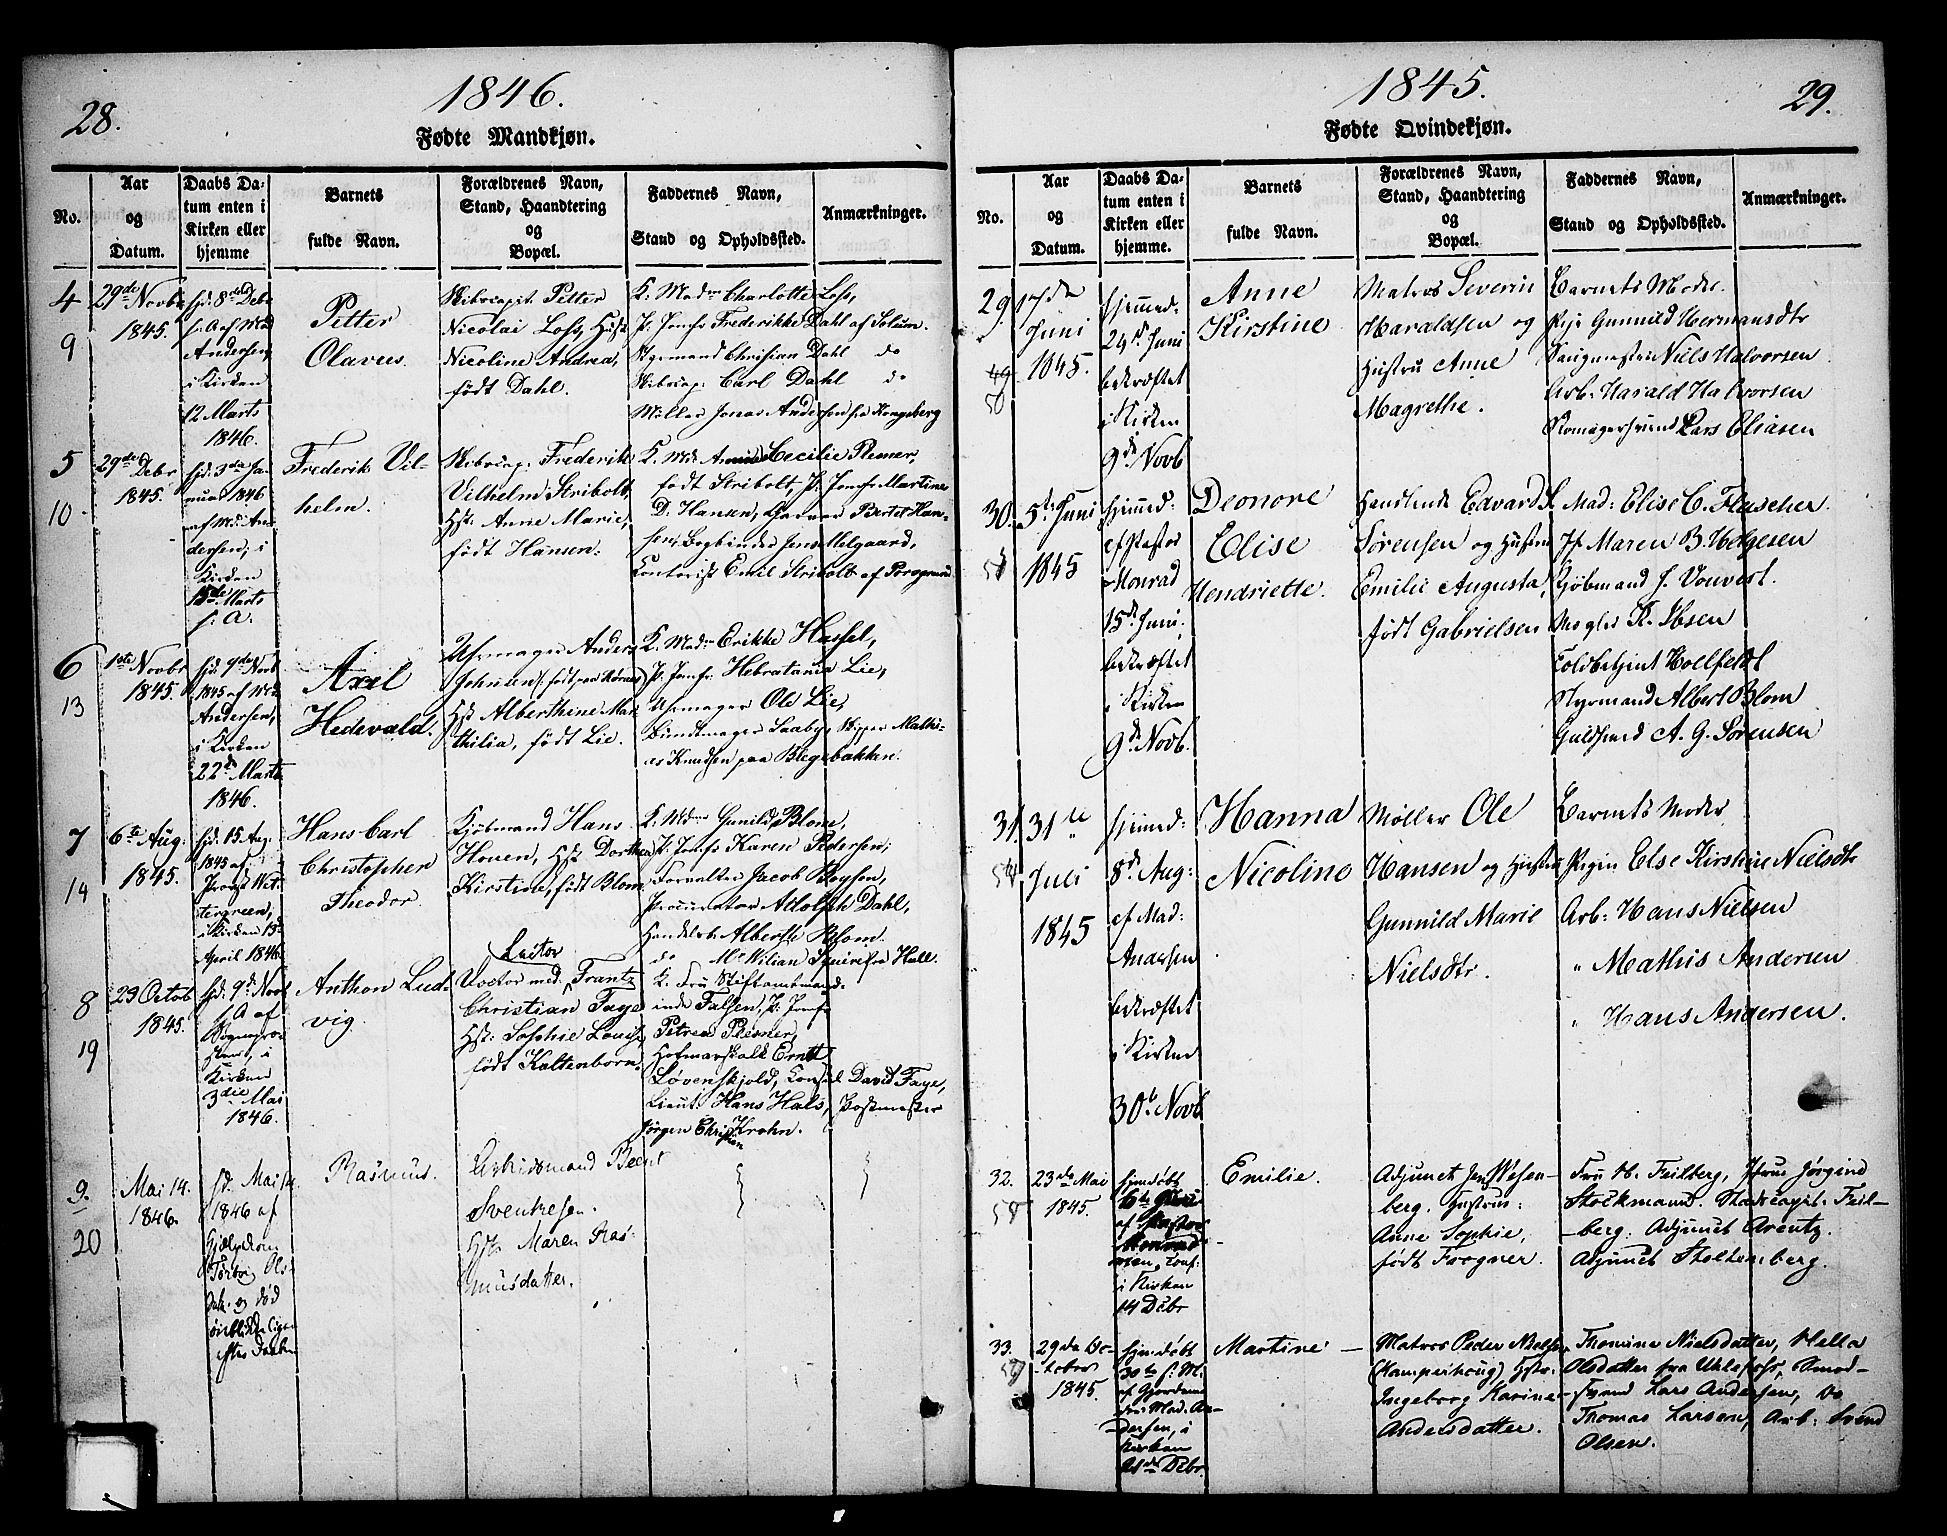 28.
1846.
Fødte Mandkjøn.
No.
Aar
og
Datum.
Daabs Da-
tum enten i
Kirken eller
hjemme
Barnets
fulde Navn.
Forældrenes Navn,
Stand, Haandtering
og
Bopæl.
Faddernes Navn,
Stand og Opholdssted.
Anmærkninger.
4
9
29de Novbr
1845.
hjd. 8de Debr
f. A af Md
Andersen,
i Kirken
12 Marts
1846.
Petter
Olavus.
Skibscapit. Petter
Nicolai Loss, Hst
Nicoline Andrea,
født Dahl.
K. Madm Charlotte Loss,
P. Jomfr Frederikke Dahl af Solum.
Styrmand Christian Dahl do
Skibscap: Carl Dahl do
Møller Jonas Andersen fra Kongsberg
5
10
29de Debr
1845.
hjd. 3da Ja-
nuar 1846
af Md An-
dersen, i
Kirken
15de Marts
f. A.
Frederik Vil-
helm.
Skibscap: Frederik
Vilhelm Stribolt,
Hst: Anne Marie,
født Hansen.
K. Md. Cecilie Plemer,
født Stribolt, P. Jomfr Martine
D. Hansen, Garver Bertel Han-
sen, Bogbinder Jens Melgaard,
Contorist Emil Stribolt af Porsgrund
6
13
1ste Novbr
1845.
hjd. 9de Novb
1845 af Md
Andersen,
i Kirken
22d Marts
1846.
Axel
Hedevald.
Uhrmager Anders
Johnsen født paa
Hst Alberthine Mar
thilia, født Lie.
K. Madm Erikke Hassel,
P. Jomfr Hebratana Lie,
Uhrmager Ole Lie,
Bundtmager Saaby, Skipper Mathi-
as Knudsen paa Blegebakken.
7
14
6te Aug:
1845.
hjd. 15. Aug.
1845 af
Provst Wet-
tergreen,
i Kirken 13d
April 1846
Hans Carl
Christopher
Theodor.
Kjøbmand Hans
Houen, Hst Dorthea
Kirstine, født Blom
K. Madm Gunild Blom,
P. Jomfr Karen Pedersen,
Forvalter Jacob Boysen,
Procurator Adolph Dahl,
Handelsb: Albert Blom.
do Mr Wilian Squire fra Hull.
8
19
23 Octob
1845.
hjd. 9d Novb
f A af
Sognepræ-
sten, i
Kirken
3die Mai
1846.
Anthon Lud-
vig.
Lector
Doctor med. Frantz
Christian Faye
Hst: Sophie Louise,
født Kaltenborn.
K. Fru Stiftamtmand-
inde Falsen, P. Jomfr
Petrea Plesner,
Hofmarskalk Ernst
Løvenskjold, Consul David Faye,
Lieut: Hans Hals, Postmester
Jørgen Christian Krohn.
9.
20
Mai 14.
1846.
hd. Mai 14
1846 af
Hjælpekone
Torbor Ols-
dat. og død
øieblikkelig
efter Daaben
Rasmus.
Arbeidsmand Beent
Sventzesen.
Hst. Maren Ras-
musdatter.
1845.
29.
Fødte Qvindekjøn.
No.
Aar
og
Datum.
Daabs Da-
tum enten i
Kirken eller
hjemme.
Barnets
fulde Navn.
Forældrenes Navn,
Stand, Haandtering
og
Bopæl.
Faddernes Navn,
Stand og Opholdssted.
Anmærkninger.
29.
49
50
17de
Juni
1845.
hjemmed:
24d Juni
bekræftet
i Kirken
9d Novb
Anne
Kirstine
Matros Severin
Haraldsen og
Hustru Anne
Magrethe.
Barnets Moder.
Pige Gunnild Hermansdtr
Saugmester Niels Halvorsen
Arb. Harald Halvorsen
Skomagersvend Lars Eliasen
30.
5te Juni
1845
hjemmed:
af Pastor
Monrad
15d Juni.
bekræftet
i Kirken
9d Novb.
Deonore
Elise
Hendriette.
Handlende Edvard S.
Sørensen og Hustru
Emilie Augusta,
født Gabrielsen
Mad: Elise C. Fluscher.
Jf. Maren B. Helgesen
Kjøbmand J. Vouvert.
Mægler K. Ibsen
Toldbetjent Hollfeldt
Styrmand Albert Blom
Guldsmed A. G. Sørensen
31.
31te
Juli
1845
hjemmed:
8d Aug:
af Mad:
Andersen
bekræftet
i Kirken
30te Novb
Hanna
Nicoline
Møller Ole
Hansen og Hustru
Gunnild Marie
Nielsdtr.
Barnets Moder
Pigen Else Kirstine Nielsdtr
Arb: Hans Nielsen
" Mathis Andersen
" Hans Andersen.
32.
23de Mai
1845.
hjemdøbt
af Pastor
Conf:
i Kirken
14 Debr
Emilie.
Adjunct Jens Wesen-
berg. Hustru:
Anne Sophie,
født Frogner.
Fru H. Feilberg, Jfrue Jørgine
Stockmann. Skibscapit. Feil-
berg. Adjunct Arentz.
Adjunct Stoltenberg.
33.
29de Oc-
tober
1845.
hjemdøbt
30te f: M:
af Gjordemo-
dre Mad. An-
dersen, i
Kirken
21de Debr
Martine
Matros Peder Nielsen
(Kamperhoug), Hstr.
Ingeborg Karine
Andersdatter.
Thomine Nielsdatter, Hella
Olsdatter fra Uklefos, Smed-
svend Lars Andersen, do
Thomas Larsen, Arb: Svend
Olsen.